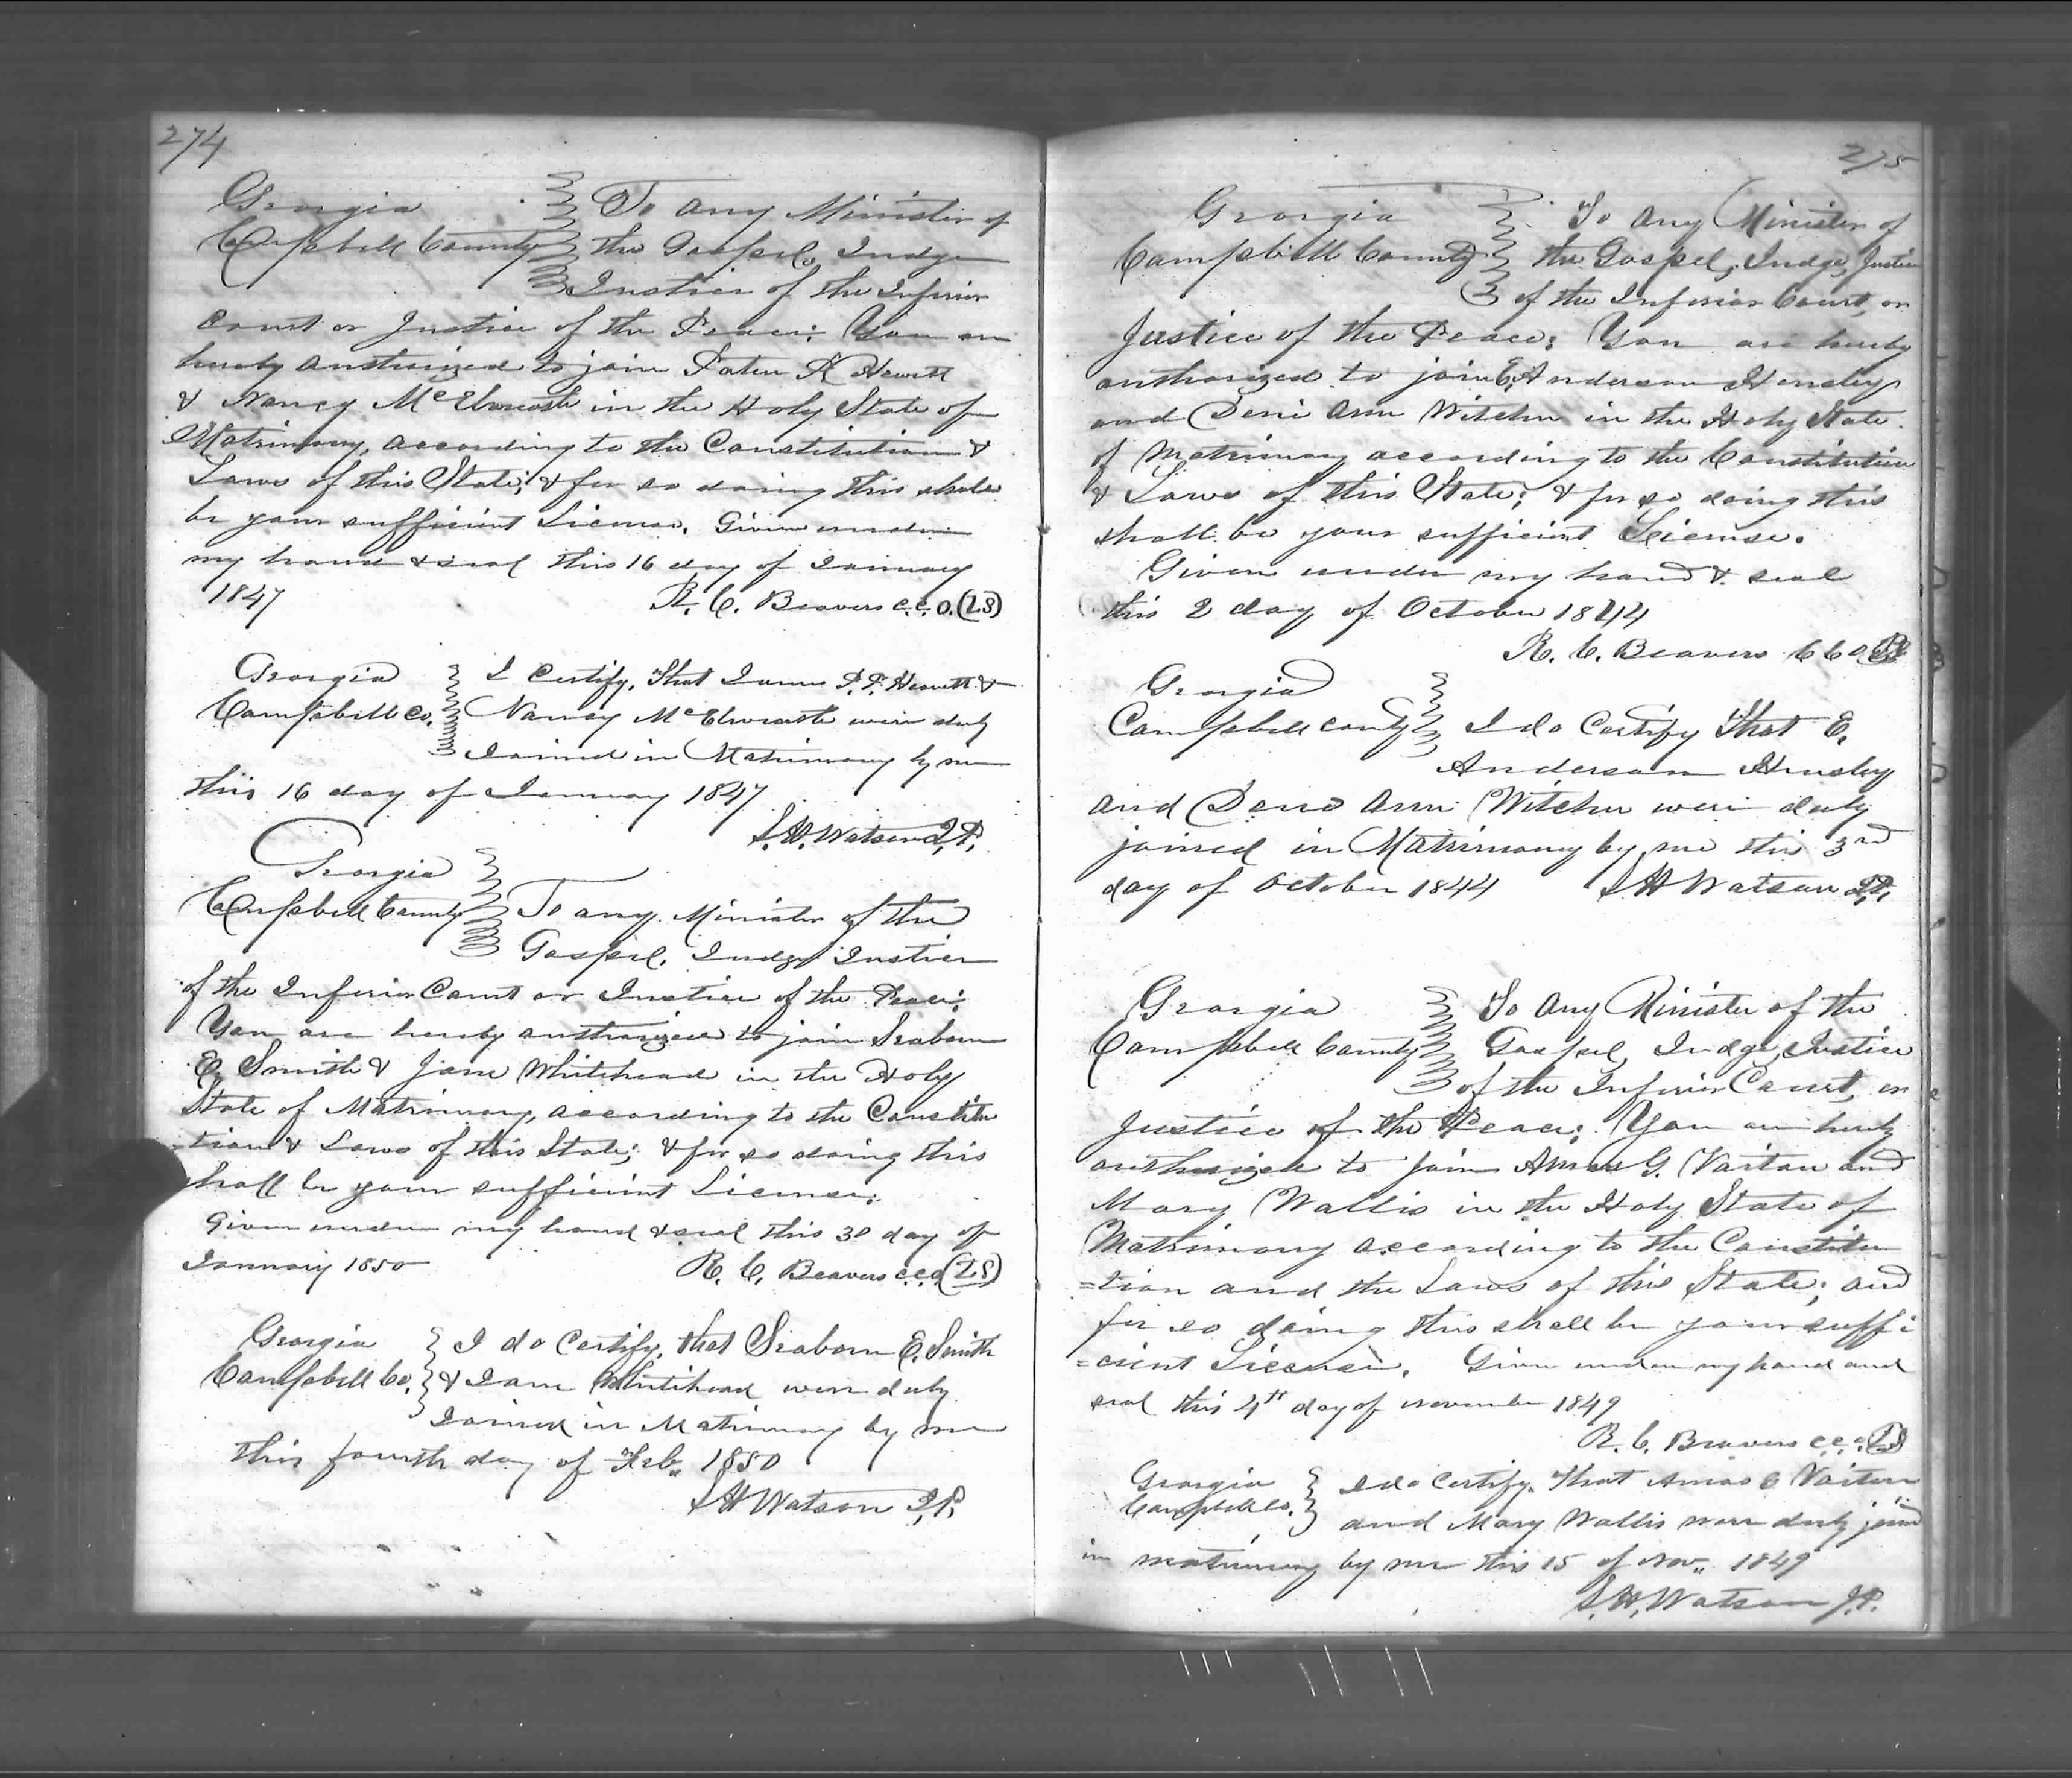 274
Georgia
Campbell County
To any Minister of
the Gospel, Judge
Justice of the Inferior
Court or Justice of the Peace: You are
hereby authorized to join P. Hewett
& Nancy in the Holy State of
Matrimony, according to the Constitution &
Laws of this State; & for so doing this shall
be your sufficient License. Given under
my hand & seal this 16 day of January
1847
R. C. Beavers c.c.o. (L.S)
Georgia
Campbell Co.
I Certify, that James P. P. Hewett &
Nancy were duly
Joined in Matrimony by me
this 16 day of January 1847
S. H. Watson J.P.
Georgia
Campbell County
To any Minister of the
Gospel, Judge Justice
of the Inferior Court or Justice of the Peace:
You are hereby authorized to join Seaborn
E. Smith & Jane Whitehead in the Holy
State of Matrimony, according to the Constitu
tion & Laws of this State; & for so doing this
shall be your sufficient License:
Given under my hand & seal this 30 day of
January 1850
R. C. Beavers c.c.o (L.S)
Georgia
Campbell Co.
I do Certify, that Seaborn E. Smith
& Jane Whitehead were duly
Joined in Matrimony by me
this fourth day of Feb,, 1850
S H Watson J.P.
275
Georgia
Campbell County
To any Minister of
the Gospel, Judge, Justice
of the Inferior Court, or
Justice of the Peace: You are hereby
authorized to join E. Anderson Hensley
and Ann Witcher in the Holy State
of Matrimony according to the Constitution
& Laws of this State; & for so doing this
shall be your sufficient License.
Given under my hand & seal
this 2 day of October 1844
R. C. Beavers C C O
Georgia
Campbell County
I do Certify that E.
Anderson Hensley
and Ann Witcher were duly
joined in Matrimony by me this 3rd
day of October 1844
S H Watson J.P.
Georgia
Campbell County
To any Minister of the
Gospel, Judge, Justice
of the Inferior Court, or
Justice of the Peace: You are hereby
authorized to join Amos G. and
Mary Wallis in the Holy State of
Matrimony according to the Constitu
=tion and the Laws of this State; and
for so doing this shall be your suffi
=cient License. Given under my hand and
seal this 4th day of November 1849
R. C. Beavers c.c.o
Georgia
Campbell Co.
I do Certify that Amos
and Mary Wallis were duly joined
in matrimony by me this 15 of Nov,, 1849
S. H. Watson J.P.